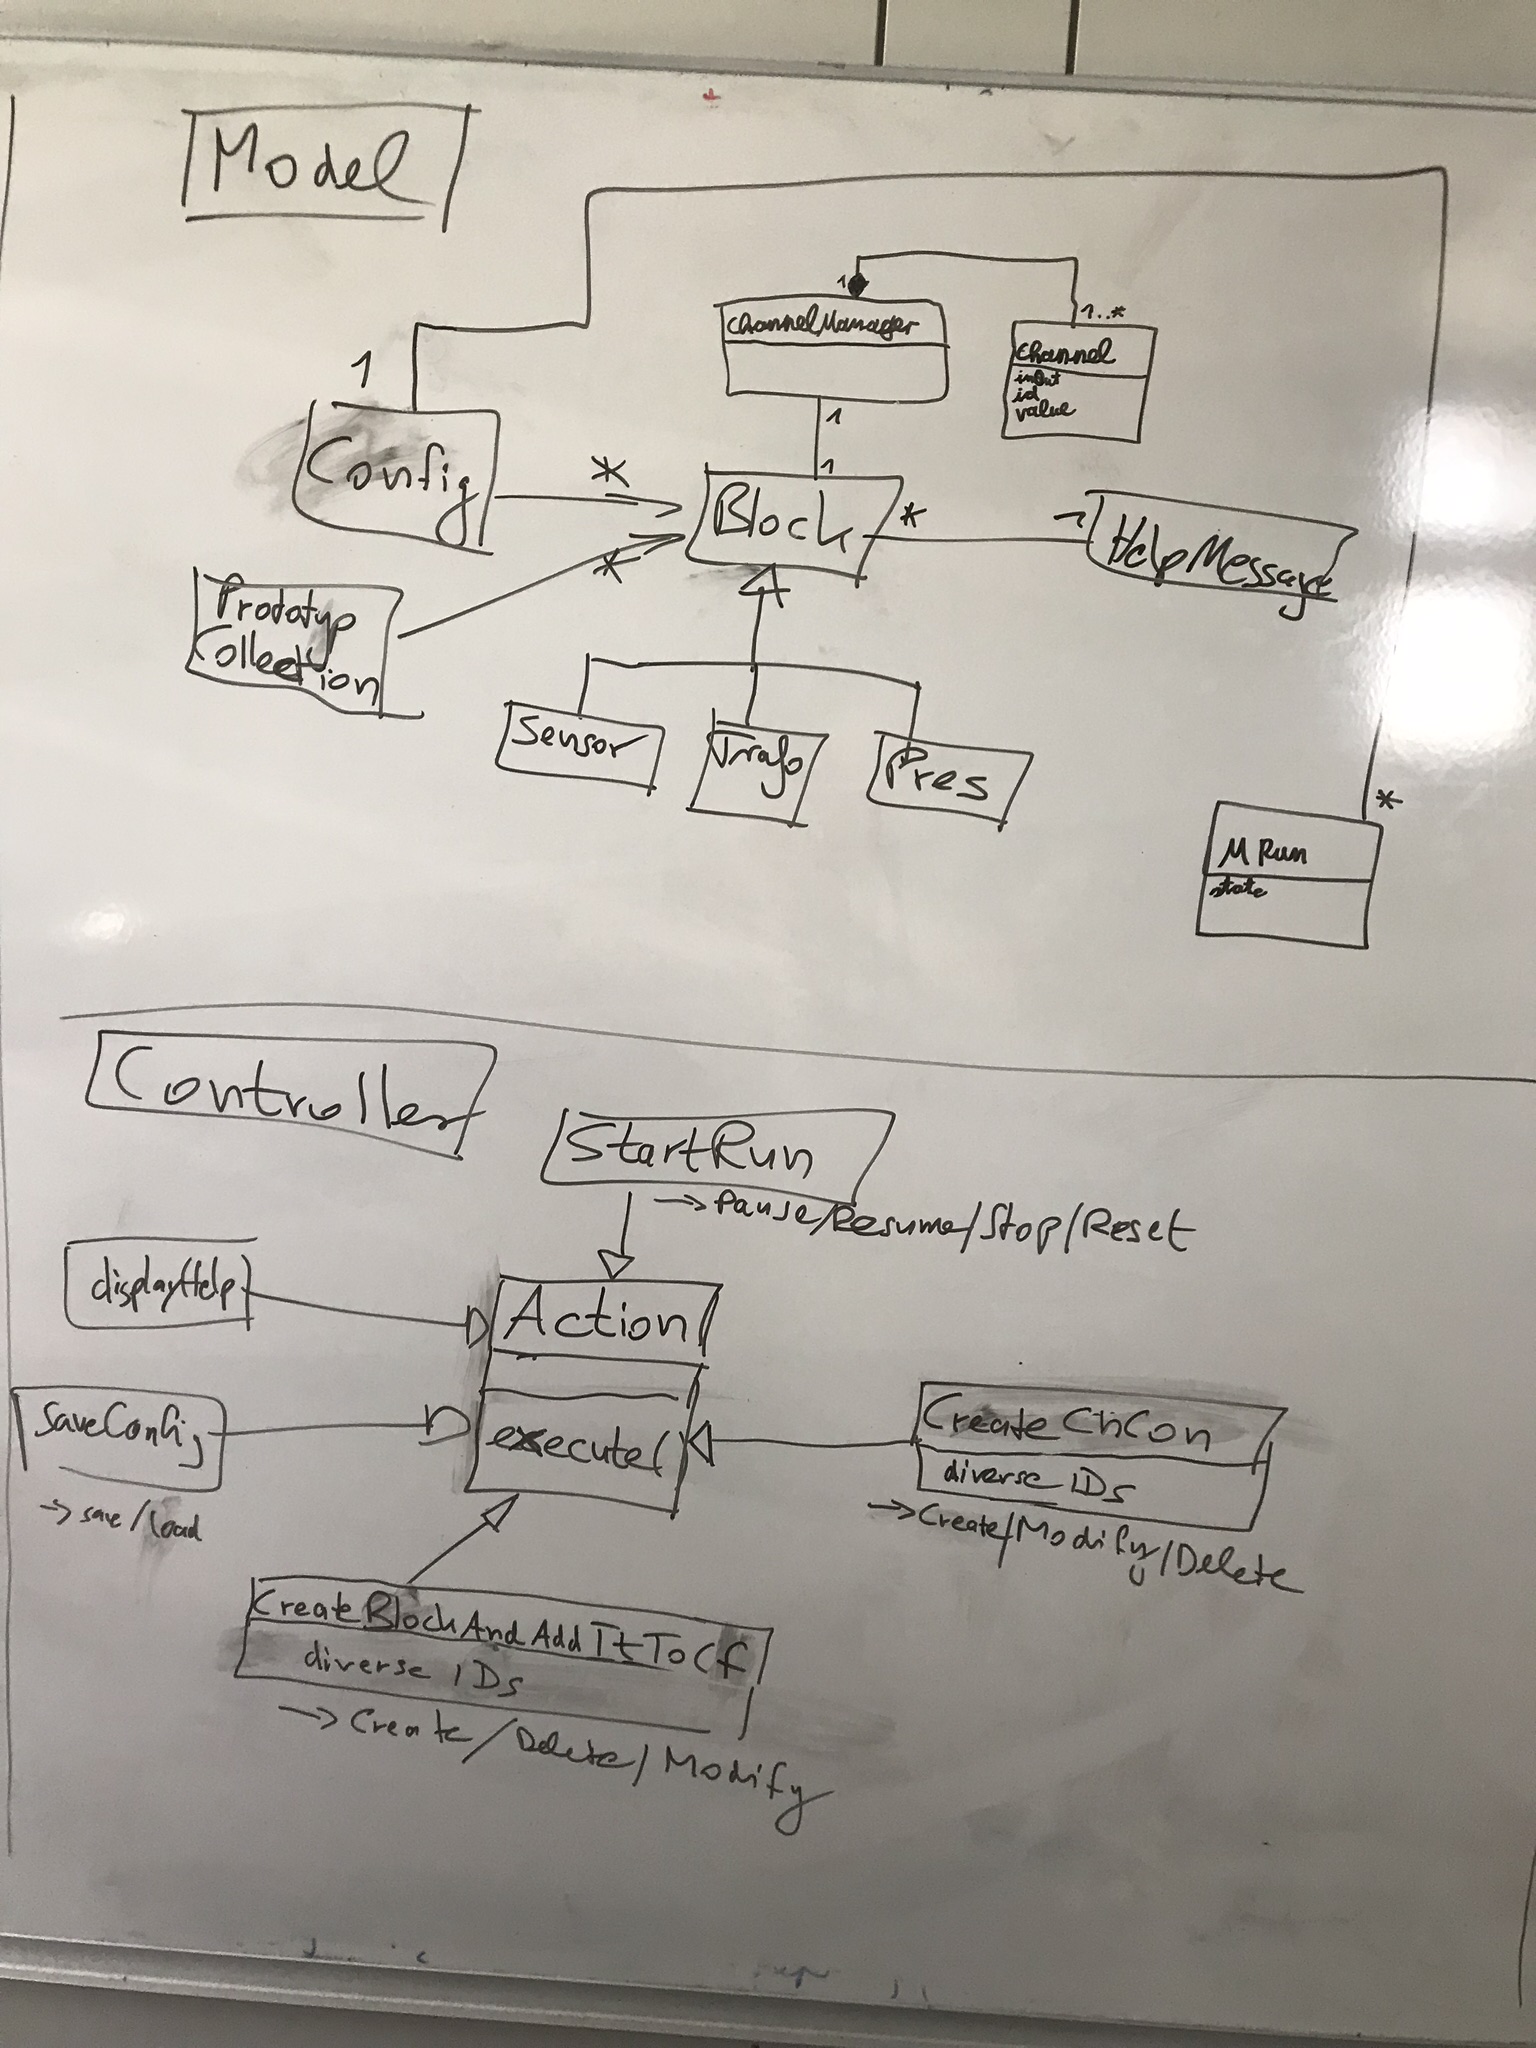 Model
1
1..*
ChannelManager
Channel
inOut
id
value
1
1
1
Config
*
Block
*
1
HelpMessage
Prototyp
Collection
*
Sensor
Trafo
Pres
*
MRun
state
Controller
StartRun
→ Pause/Resume/Stop/Reset
displayHelp
Action
execute(
saveConfig
→ save/load
Create ChCon
diverse IDs
→ Create/Modify/Delete
CreateBlockAndAddItToCf
diverse IDs
→ Create/Delete/Modify